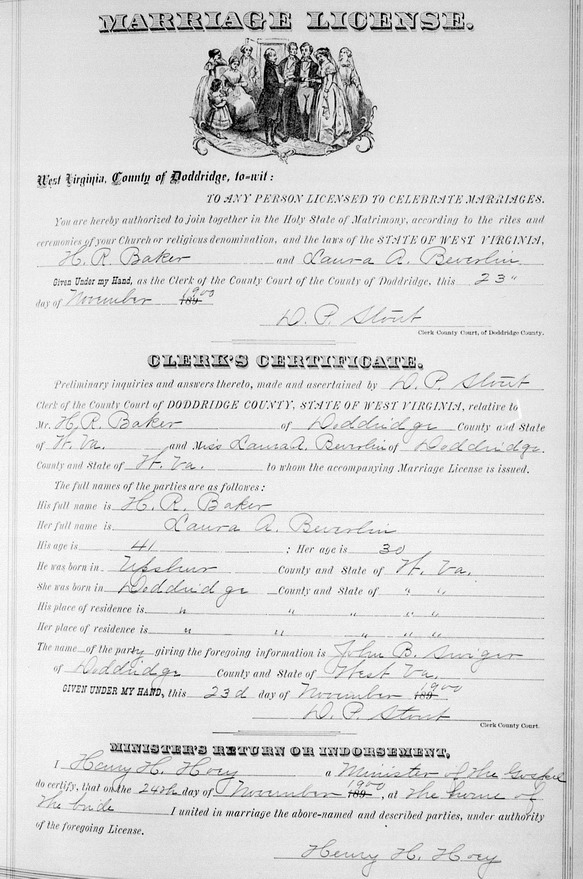 MARRIAGE LICENSE.
West Virginia, County of Doddridge, to-wit:
TO ANY PERSON LICENSED TO CELEBRATE MARRIAGES.
You are hereby authorized to join together in the Holy State of Matrimony, according to the rites and
ceremonies of your Church or religious denomination, and the laws of the STATE OF WEST VIRGINIA,
H. R. Baker and Laura A. Beverlin
Given Under my Hand, as the Clerk of the County Court of the County of Doddridge, this 23"
day of November 189 1900
D. P. Stout
Clerk County Court, of Doddridge County.
CLERK'S CERTIFICATE.
Preliminary inquiries and answers thereto, made and ascertained by D. P. Stout
Clerk of the County Court of DODDRIDGE COUNTY, STATE OF WEST VIRGINIA, relative to
Mr. H. R. Baker of Doddridge County and State
of W. Va. and Miss Laura A. Beverlin of Doddridge.
County and State of W. Va. to whom the accompanying Marriage License is issued.
The full names of the parties are as follows:
His full name is H. R. Baker
Her full name is Laura A. Beverlin
His age is 41 ; Her age is 30
He was born in Upshur County and State of W. Va.
She was born in Doddridge County and State of " "
His place of residence is " " " " "
Her place of residence is " " " " "
The name of the party giving the foregoing information is John B. Swiger
of Doddridge County and State of West Va.
GIVEN UNDER MY HAND, this 23d day of November 189 1900
D. P. Stout
Clerk County Court.
MINISTER'S RETURN OR INDORSEMENT.
I Henry H. Hoey a Minister of the Gospel
do certify, that on the 24th day of November 189 1900, at the home of
the bride I united in marriage the above-named and described parties, under authority
of the foregoing License.
Henry H. Hoey